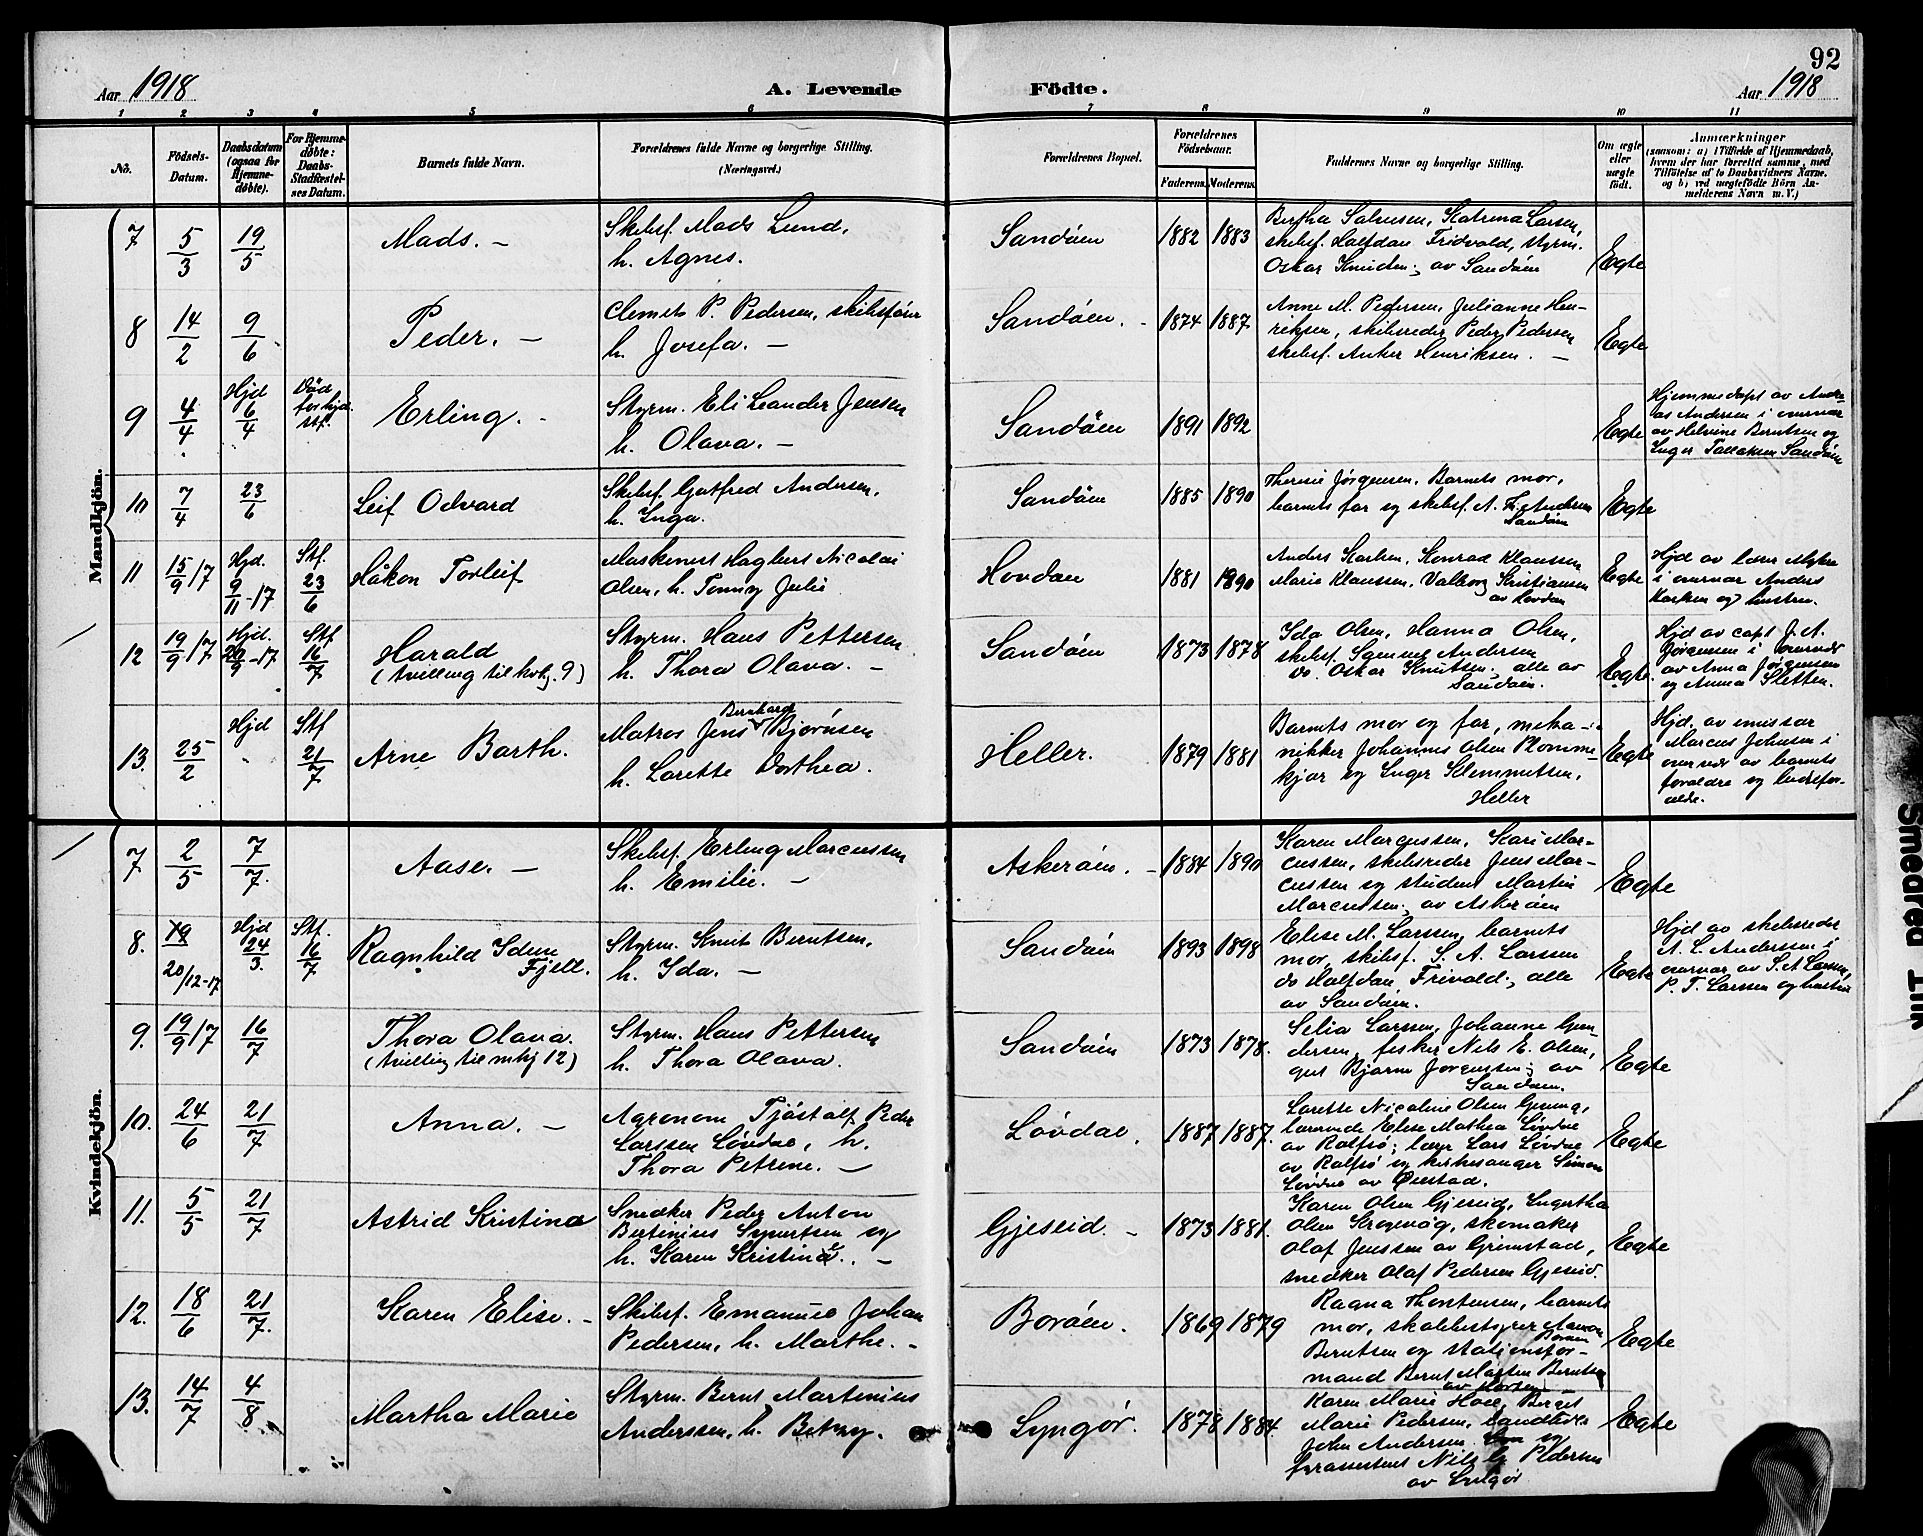 92
Aar 1918 A. Levende Födte. Aar 1918
1 2 3 4 5 6 7 8 9 10 11
No. Födsels-Datum. Daabsdatum (ogsaa for Hjemme-döbte). For Hjemme-döbte: Daabs-Stadfæstel-ses Datum. Barnets fulde Navn. Forældrenes fulde Navne og borgerlige Stilling. (Næringsvei.) Forældrenes Bopæl. Forældrenes Födselsaar. Faderens. Moderens. Faddernes Navne og borgerlige Stilling. Om ægte eller uægte födt. Anmærkninger
(saasom: a) i Tilfælde af Hjemmedaab,
hvem der har forrettet samme, med
Tilföielse af to Daabsvidners Navne.
og b) ved uægtefödte Börn An-
melderens Navn m. V.)
Mandkjön.
7 5/3 19/5 Mads. –
Skibsf. Mads Lund,
h. Agnes.
Sandöen 1882 1883
Bertha Salvesen, Katrina Larsen,
skibsf. Halfdan Fridvald, styrm.
Oskar Knudsen; av Sandöen
Egte
8 14/2 9/6 Peder. –
Clemets P. Pedersen, skibsförer
h. Josefa. –
Sandöen. 1874 1887
Anne M. Pedersen, Julianne Hen-
riksen, skibsreder Peder Pedersen
skibsf. Anker Henriksen. –
Egte
9 4/4 Hjd 6/4 Död for hjd. stf. Erling. –
Styrm. Eli Leander Jensen
h. Olava. –
Sandöen 1891 1892
Egte
Hjemmedöpt av Andre-
as Andersen i overvær
av Helvine Berntsen og
Inger Tallaksen Sandöen
10 7/4 23/6 Leif Odvard
Skibsf. Gotfred Andersen,
h. Inga.
Sandöen 1885 1890
Therese Jörgensen, Barnets mor,
barnets far og skibsf. A. F. Andersen
Sandöen
Egte
11 15/9 17 Hjd. 9/11-17 Stf. 23/6 Håkon Torleif
Maskinist Hagbert Nicolai
Olsen, h. Tonny Julie
Hovdan 1881 1890
Anders Karlsen, Konrad Klaussen
Marie Klaussen, Valborg Kristiansen
av Hovdan
Egte
Hjd av lærer Myhre
i overvær Anders
Karlsen og hustru.
12 19/9 17 Hjd. 29/9-17 Stf 16/7 Harald
(tvilling til kvkj. 9)
Styrm. Hans Pettersen
h. Thora Olava. –
Sandöen 1873 1878
Ida Olsen, Hanna Olsen,
skibsf. Samuel Andersen
do. Oskar Knutsen. alle av
Sandöen.
Egte.
Hjd av capt J. A.
Jörgensen i overvær
av Anna Jörgensen
og Anna Sletten.
13. 25/2 Hjd Stf 21/7 Arne Barth.
Matros Jens Bernhard Björnsen
h. Lorette Dorthea.
Heller. 1879 1881
Barnets mor og far, meka-
nikker Johannes Olsen Plomme-
kjær og Inger Klemmetsen,
Heller
Egte
Hjd. av emissær
Marcus Johnsen i
overvær av barnets
forældre og bedstefor-
ældre.
Kvindekjön.
7 2/5 7/7. Aase. –
Skibsf. Erling Marcussen
h. Emilie. –
Askeröen. – 1884 1890
Karen Marcussen, Kari Mar-
cussen, skibsreder Jens Mar-
cussen og student Martin
Marcussen; av Askeröen
Egte
8. 20/12-17 Hjd 24/3. Stf. 16/7 Ragnhild Idun
Fjell.
Styrm. Knut Berntsen,
h. Ida. –
Sandöen 1893 1898
Elise M. Larssen, barnets
mor, skibsf. S. A. Larssen
do Halfdan Frivald; alle
av Sandöen.
Egte
Hjd av skibsreder
A. L. Anderssen i
overvær av S. A Larssen,
P. T. Larssen og hustru
9. 19/9 17 16/7 Thora Olava.
(tvilling til mkj 12)
Styrm. Hans Pettersen
h. Thora Olava.
Sandöen 1873 1878.
Selia Larssen, Johanne Gun-
dersen, fisker Nils E. Olsen,
gut Bjarne Jörgensen; av
Sandöen.
Egte
10. 24/6 21/7 Anna. –
Agronom Tjöstolf Peder
Larssen Lövdal, h.
Thora Petrine. –
Lövdal. 1887 1887.
Lorette Nicoline Olsen
lærerinde Elise Mathea Lövdal
av Rolfsö; lærer Lars Lövdal
av Rolfsö og kirkesanger Simon
Lövdal av Öiestad.
Egte
11. 5/5 21/7 Astrid Kristine
Snedker Peder Anton
Bertinius Syvertsen og
h. Karen Kristine. –
Gjeseid. – 1873 1881.
Karen Olsen Gjeseid, Ingertha
Olsen Krogevåg, skomaker
Olaf Jenssen av Grimstad,
snedker Olaf Pedersen Gjeseid.
Egte
12. 18/6 21/7. Karen Elise. –
Skibsf. Emanuel Johan
Pedersen, h. Marthe. –
Boröen. 1869 1879
Ragna Thorstensen, barnets
mor, skolebestyrer Aanon
Berntsen Boröen og stationsfor-
mand Bernt Morten Berntsen
Egte
13. 14/7 4/8 Martha Marie
Styrm. Bernt Martinius
Anderssen, h. Betzy.
Lyngör. 1878 1884
Karen Marie Hove, Birgit
Marie Pedersen, handlende
John Andersen og
Nils G. Pedersen
av Lyngör
Egte
Smeared Ink